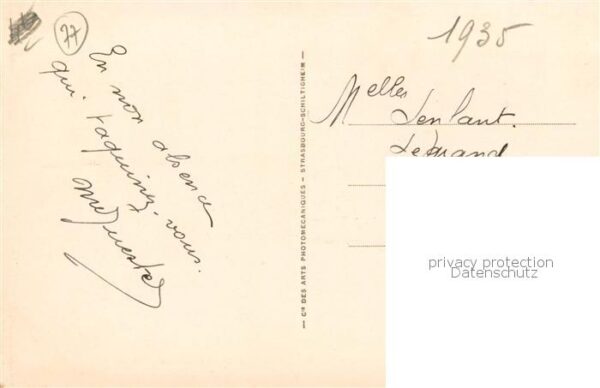 77
En mon absence
qui taquinez-vous.
1935
Melles
Legrand
— Cie DES ARTS PHOTOMECANIQUES - STRASBOURG-SCHILTIGHEIM —
privacy protection
Datenschutz